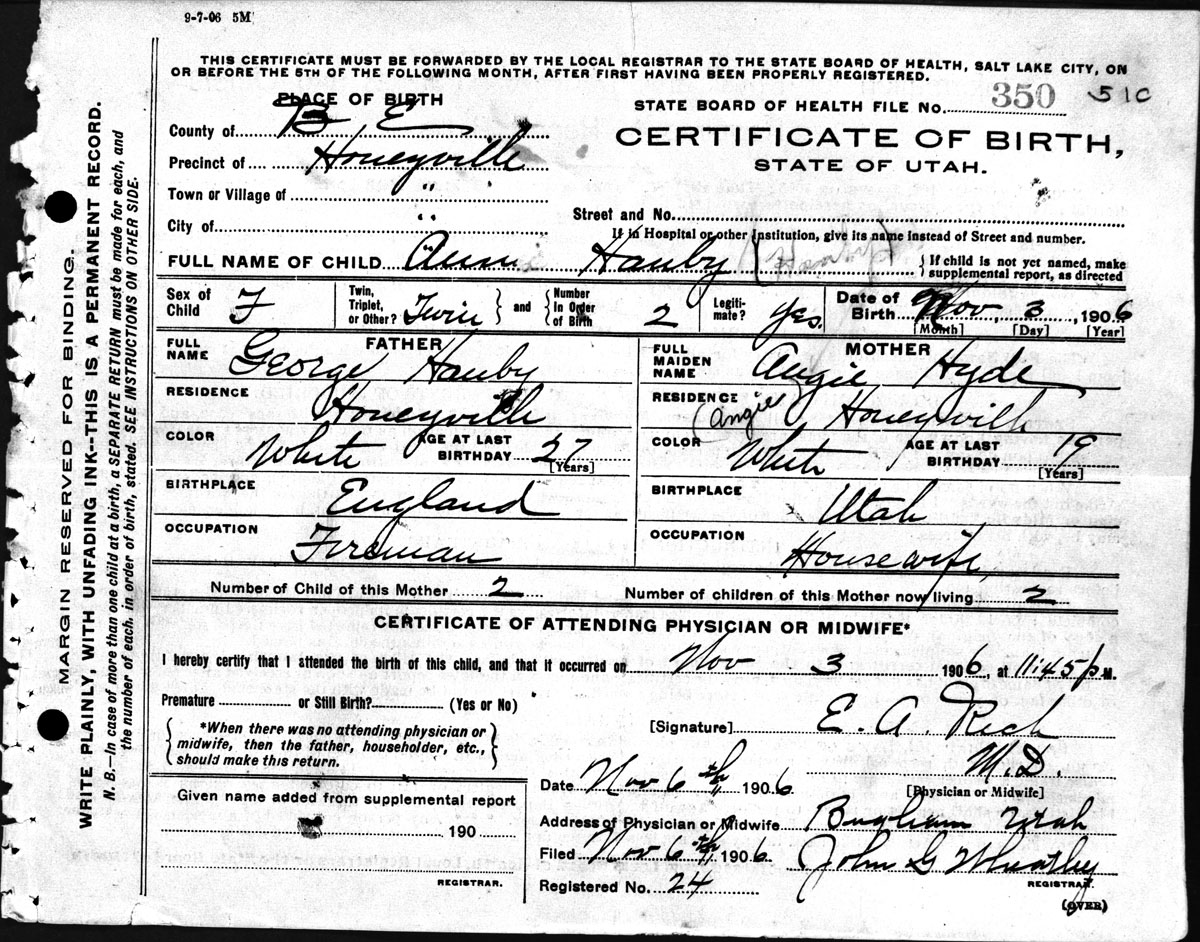 9-7-06 5M
THIS CERTIFICATE MUST BE FORWARDED BY THE LOCAL REGISTRAR TO THE STATE BOARD OF HEALTH, SALT LAKE CITY, ON
OR BEFORE THE 5TH OF THE FOLLOWING MONTH, AFTER FIRST HAVING BEEN PROPERLY REGISTERED.
PLACE OF BIRTH
STATE BOARD OF HEALTH FILE No. 350 51C
County of B E
CERTIFICATE OF BIRTH,
Precinct of Honeyville
STATE OF UTAH.
Town or Village of "
Street and No.
City of "
If in Hospital or other Institution, give its name instead of Street and number.
FULL NAME OF CHILD Hanby (Hanby) { If child is not yet named, make
supplemental report, as directed
Sex of Child F Twin, Triplet, or Other? Twin } and { Number In Order of Birth 2 Legiti-mate? Yes. Date of Birth Nov, 3, 1906
[Month] [Day] [Year]
FATHER
FULL NAME George Hanby
RESIDENCE Honeyville
COLOR White AGE AT LAST BIRTHDAY 27
[Years]
BIRTHPLACE England
OCCUPATION Fireman
MOTHER
FULL MAIDEN NAME Angie Hyde
RESIDENCE (Angie) Honeyville
COLOR White AGE AT LAST BIRTHDAY 19
[Years]
BIRTHPLACE Utah
OCCUPATION Housewife
Number of Child of this Mother 2 Number of children of this Mother now living 2
CERTIFICATE OF ATTENDING PHYSICIAN OR MIDWIFE*
I hereby certify that I attended the birth of this child, and that it occurred on Nov 3 1906, at 11:45 p M.
Premature or Still Birth? (Yes or No)
{ *When there was no attending physician or
midwife, then the father, householder, etc.,
should make this return. }
[Signature] E. A. Rich
M.D.
[Physician or Midwife]
Date Nov 6th 1906
Address of Physician or Midwife Brigham Utah
Filed Nov 6th 1906 John G Wheatley
REGISTRAR.
Registered No. 24
(OVER)
Given name added from supplemental report
190
REGISTRAR.
MARGIN RESERVED FOR BINDING.
WRITE PLAINLY, WITH UNFADING INK--THIS IS A PERMANENT RECORD.
N. B.—In case of more than one child at a birth, a SEPARATE RETURN must be made for each, and
the number of each, in order of birth, stated. SEE INSTRUCTIONS ON OTHER SIDE.